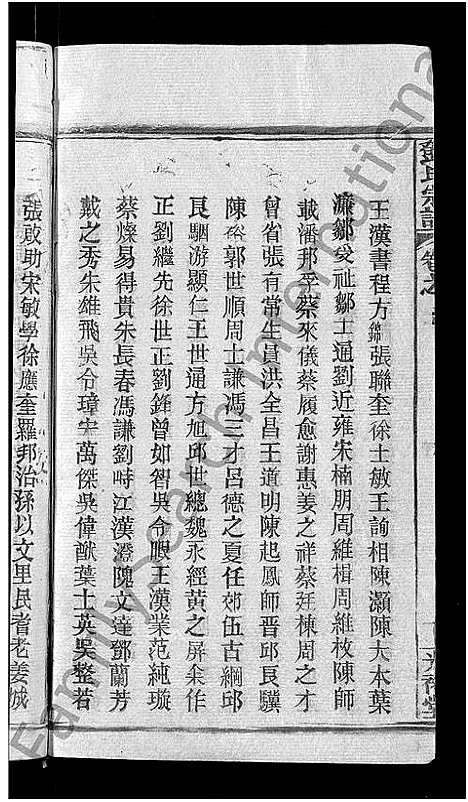 鄧氏宗譜
卷之
光裕堂
王漢書程方錦張聯奎徐士敏王詢相陳灝陳大本葉
濂鄒受祉鄒士通劉近雍宋楠朋周維楫周維枚陳師
載潘邦孚蔡來儀蔡履愈謝惠姜之祥蔡廷棟周之才
曾省張有常生員洪全昌王道明陳起鳳師晋邱良驥
陳裕郭世順周士謙馮三才呂德之夏任郊伍古綱邱
良駟游顯仁王世通方旭邱世總魏永經黃之屏余作
正劉繼先徐世正劉鋒曾如智吳令眼王漢業范純璇
蔡燦易得貴朱長春馮謙劉時江漢澄陳文達鄧蘭芳
戴之秀朱雄飛吳令璋宋萬傑吳偉猷葉士英吳整若
張敢助宋敏學徐應奎羅邦治孫以文里民耆老姜城
FamilySearch International